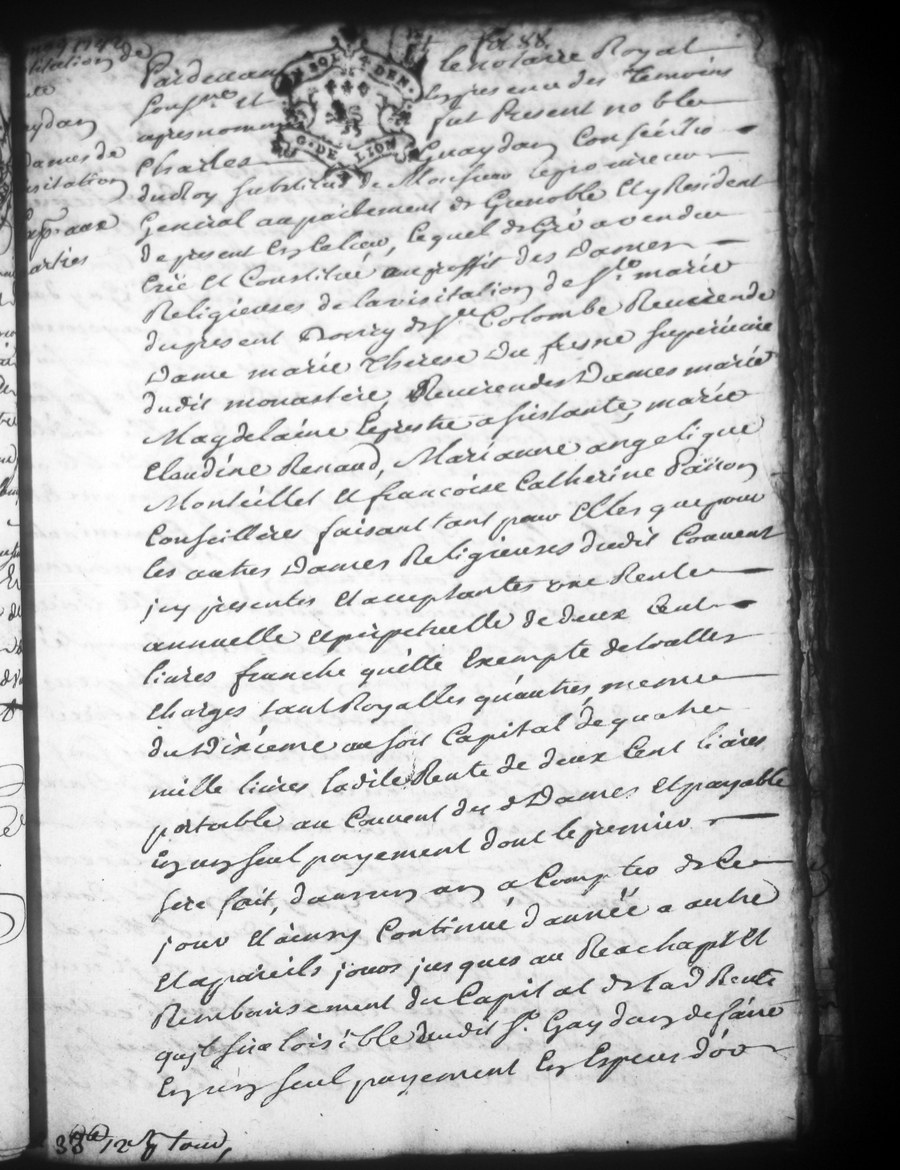 fol 88.
Pardevant le notaire Royal
soussné et En presence des Temoins
apres nommés fut Present noble
Charles Guaydan Conseillier
du Roy substitud de Monsieur le procureur
General au parlement de Grenoble Et y Resident
de present En ce lieu, lequel de Gré a vendu
Créé Et Constitué au proffit des Dames
Religieuses de la visitation de Ste marie
du present Bourg de Ste Colombe Reverende
Dame marie Therese Du fresne superieure
dudit monastere, Reverendes Dames marie
Magdelaine Leprestre assistante, marie
Claudine Renaud, Marianne angelique
Monteillet Et francoise Catherine
Conseilleres faisant tant pour Elles que pour
les autres Dames Religieuses dudit Couvent
icy presentes Et acceptantes une Rente
annuelle Et perpetuelle de deux Cent
livres franche quitte Exempte de touttes
Charges tant Royalles qu'autres, mesme
du dixieme au sort Capital de quatre
mille livres ladite Rente de deux Cent livres
portable au Couvent des d Dames Et payable
En un seul payement dont le premier
sera fait, d'aun an a Compter de Ce
jour Et ainsy Continué d'année a autre
Et a pareils jours jusques au Reachapt Et
Remboursement du Capital de lad Rente
qu'il sera loisible audit Sr. Gaydan de faire
En un seul payement En Especes d'or
visitation
parties